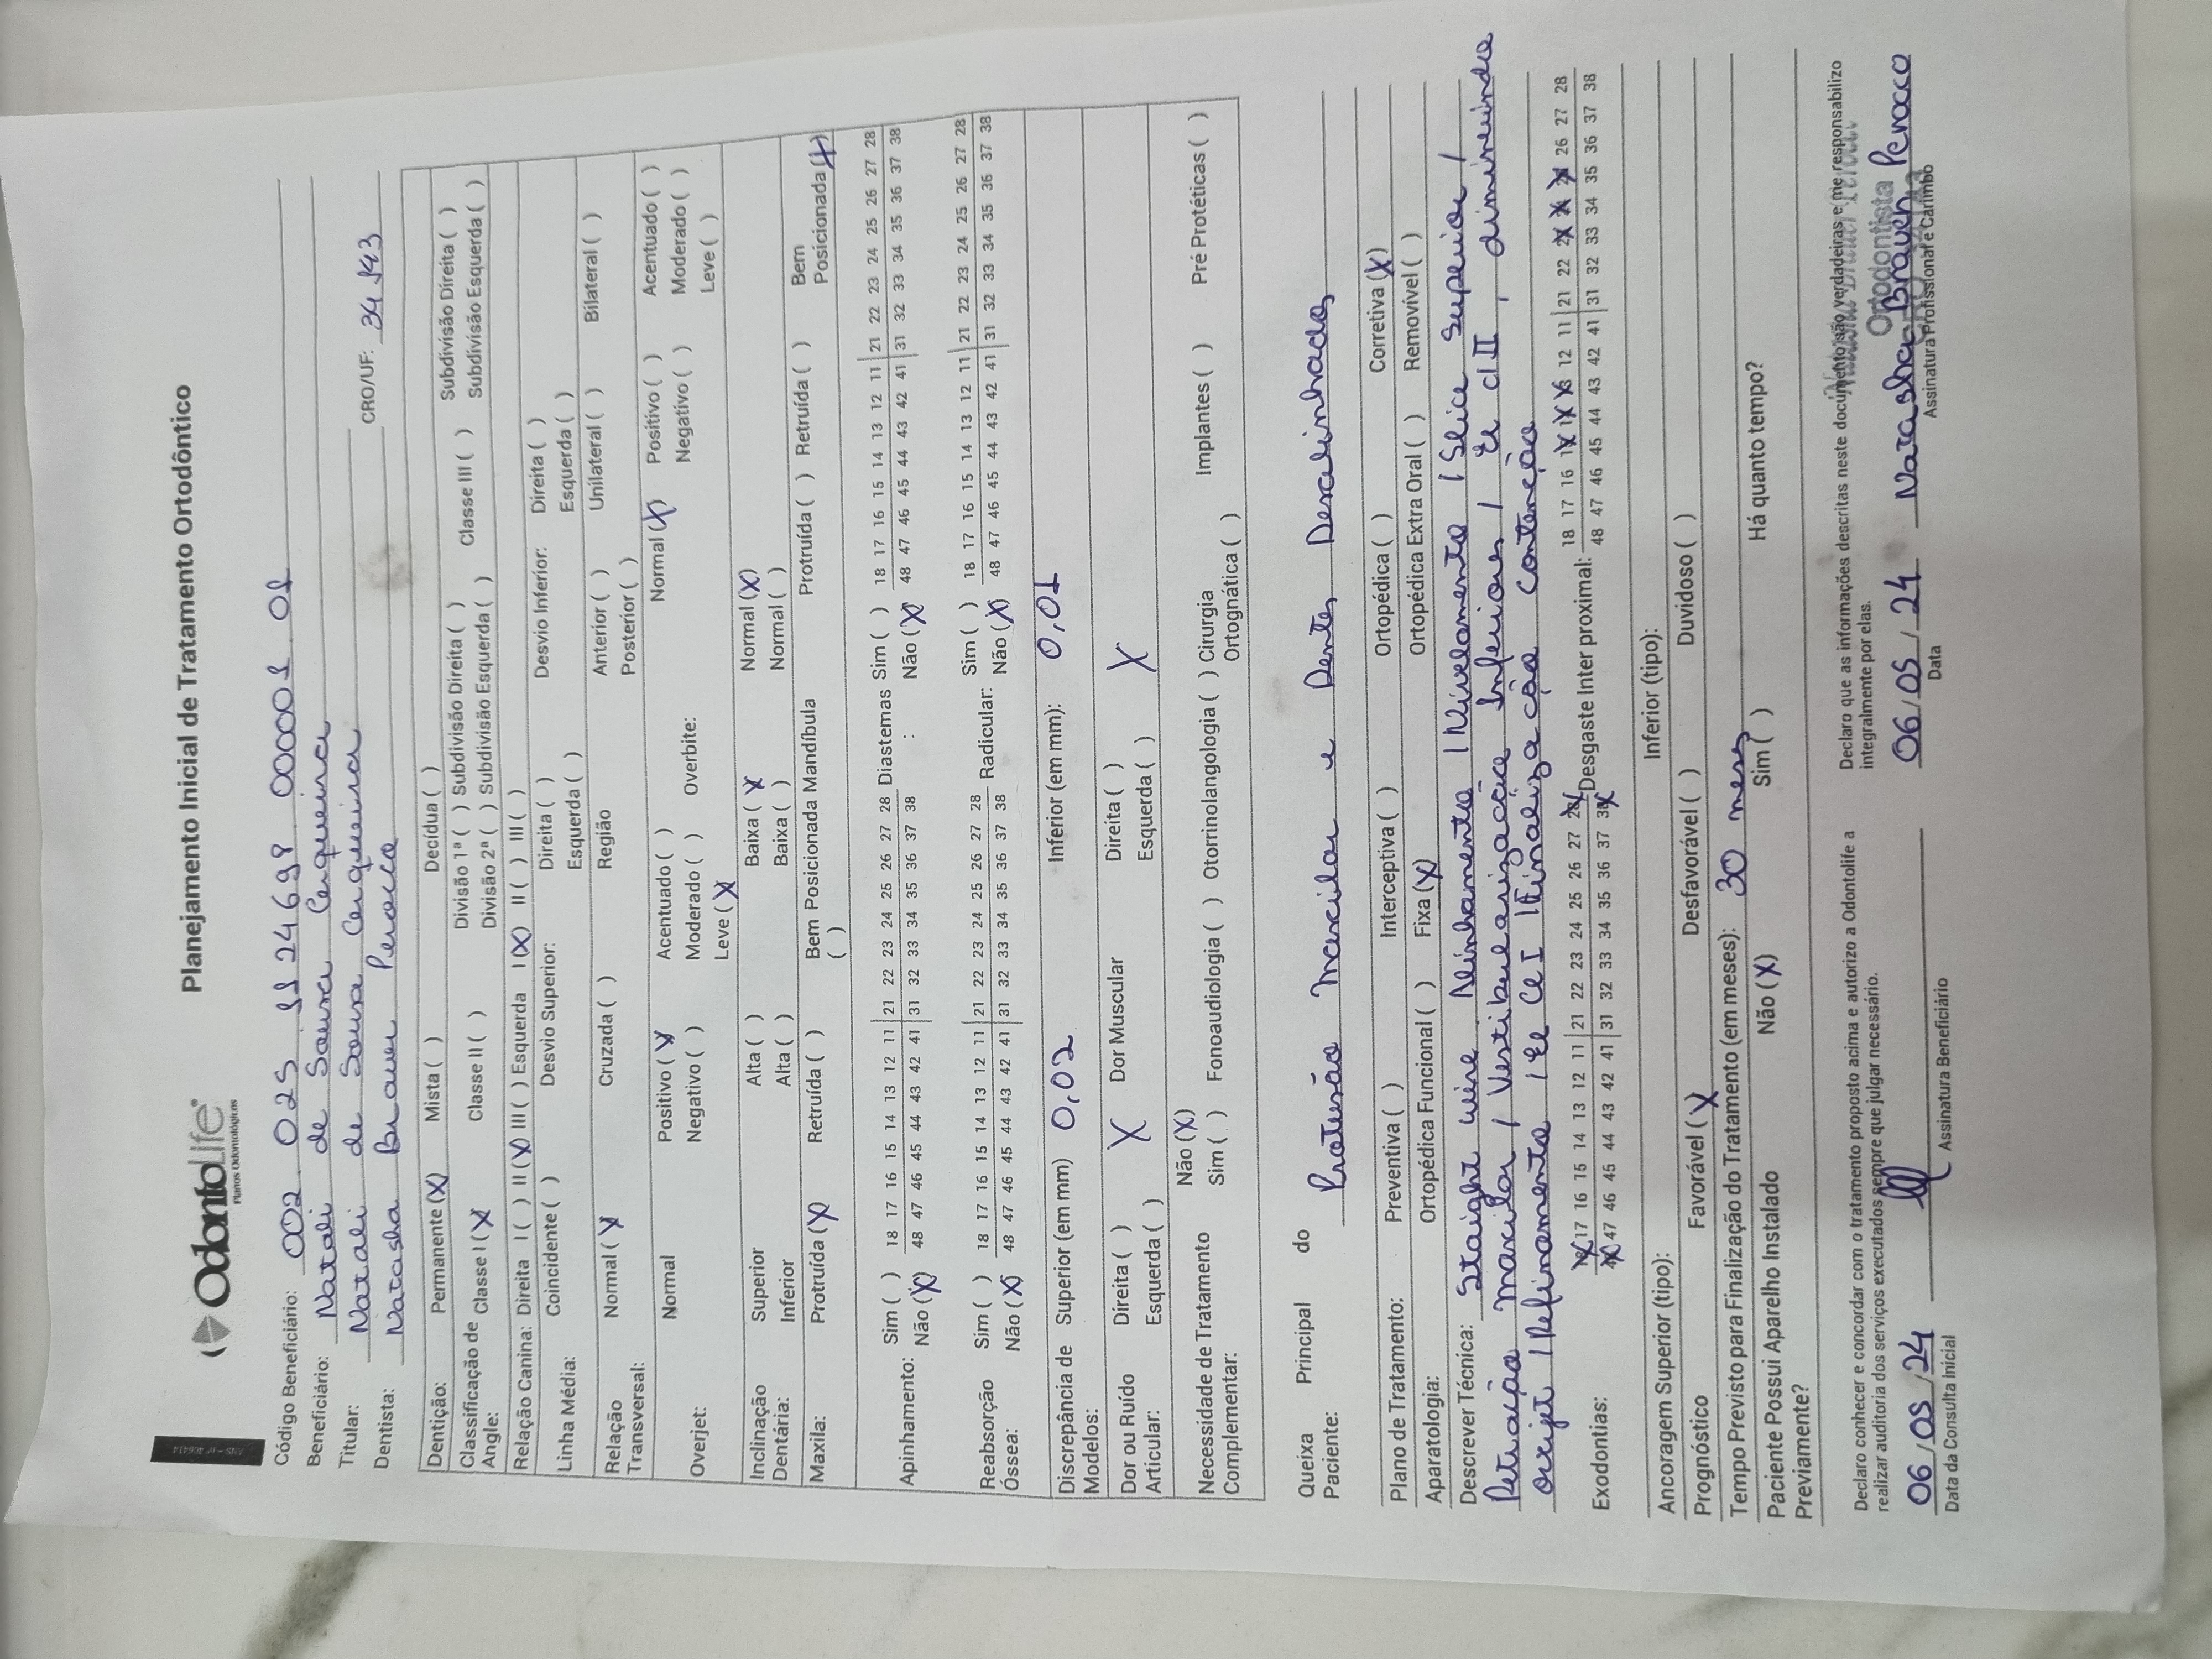 ANS - nº 406414
OdontoLife®
Planos Odontológicos
Planejamento Inicial de Tratamento Ortodôntico
Código Beneficiário: 002 . 025 .
Beneficiário: Natali de Souza Cerqueira
Titular: Natali de Souza Cerqueira
Dentista: Natasha Brauer Peroco CRO/UF:
Dentição: Permanente (X) Mista ( ) Decídua ( )
Classificação de Angle: Classe I (X) Classe II ( ) Divisão 1ª ( ) Subdivisão Direita ( ) Classe III ( ) Subdivisão Direita ( )
Divisão 2ª ( ) Subdivisão Esquerda ( ) Subdivisão Esquerda ( )
Relação Canina: Direita I ( ) II (X) III ( ) Esquerda I (X) II ( ) III ( )
Linha Média: Coincidente ( ) Desvio Superior: Direita ( ) Desvio Inferior: Direita ( )
Esquerda ( ) Esquerda ( )
Relação Transversal: Normal (X) Cruzada ( ) Região Anterior ( ) Unilateral ( ) Bilateral ( )
Posterior ( )
Overjet: Normal Positivo (X) Acentuado ( ) Overbite: Normal (X) Positivo ( ) Acentuado ( )
Negativo ( ) Moderado ( ) Negativo ( ) Moderado ( )
Leve (X) Leve ( )
Inclinação Dentária: Superior Alta ( ) Baixa (X) Normal (X)
Inferior Alta ( ) Baixa ( ) Normal ( )
Maxila: Protruída (X) Retruída ( ) Bem Posicionada ( ) Mandíbula Protruída ( ) Retruída ( ) Bem Posicionada (X)
Apinhamento: Sim ( ) 18 17 16 15 14 13 12 11 | 21 22 23 24 25 26 27 28 Diastemas : Sim ( ) 18 17 16 15 14 13 12 11 | 21 22 23 24 25 26 27 28
Não (X) 48 47 46 45 44 43 42 41 | 31 32 33 34 35 36 37 38 Não (X) 48 47 46 45 44 43 42 41 | 31 32 33 34 35 36 37 38
Reabsorção Óssea: Sim ( ) 18 17 16 15 14 13 12 11 | 21 22 23 24 25 26 27 28 Radicular: Sim ( ) 18 17 16 15 14 13 12 11 | 21 22 23 24 25 26 27 28
Não (X) 48 47 46 45 44 43 42 41 | 31 32 33 34 35 36 37 38 Não (X) 48 47 46 45 44 43 42 41 | 31 32 33 34 35 36 37 38
Discrepância de Modelos: Superior (em mm) 0,02 Inferior (em mm): 0,01
Dor ou Ruído Articular: Direita ( ) X Dor Muscular Direita ( ) X
Esquerda ( ) Esquerda ( )
Necessidade de Tratamento Complementar: Não (X)
Sim ( ) Fonoaudiologia ( ) Otorrinolangologia ( ) Cirurgia Ortognática ( ) Implantes ( ) Pré Protéticas ( )
Queixa Principal do Paciente: Protusão maxilar e Dentes Desalinhados
Plano de Tratamento: Preventiva ( ) Interceptiva ( ) Ortopédica ( ) Corretiva (X)
Aparatologia: Ortopédica Funcional ( ) Fixa (X) Ortopédica Extra Oral ( ) Removível ( )
Descrever Técnica: Staight wire. Alinhamento / Nivelamento / Slice superior /
Retruição maxilar / Inferiores / El cl II , diminuindo
overjet / Refinamento / El Cl I / Finalização contenção
Exodontias: 18 17 16 15 14 13 12 11 | 21 22 23 24 25 26 27 28 Desgaste Inter proximal: 18 17 16 12 11 | 21 22 26 27 28
48 47 46 45 44 43 42 41 | 31 32 33 34 35 36 37 38 48 47 46 45 44 43 42 41 | 31 32 33 34 35 36 37 38
Ancoragem Superior (tipo): Inferior (tipo):
Prognóstico Favorável (X) Desfavorável ( ) Duvidoso ( )
Tempo Previsto para Finalização do Tratamento (em meses): 30 meses
Paciente Possui Aparelho Instalado Previamente? Não (X) Sim ( ) Há quanto tempo?
Declaro conhecer e concordar com o tratamento proposto acima e autorizo a Odontolife a
realizar auditoria dos serviços executados sempre que julgar necessário.
Declaro que as informações descritas neste documento são verdadeiras e me responsabilizo
integralmente por elas.
06/05/24
Data da Consulta Inicial
Assinatura Beneficiário
06/05/24
Data
Natasha Brauer Peroco
Ortodontista
Assinatura Profissional e Carimbo